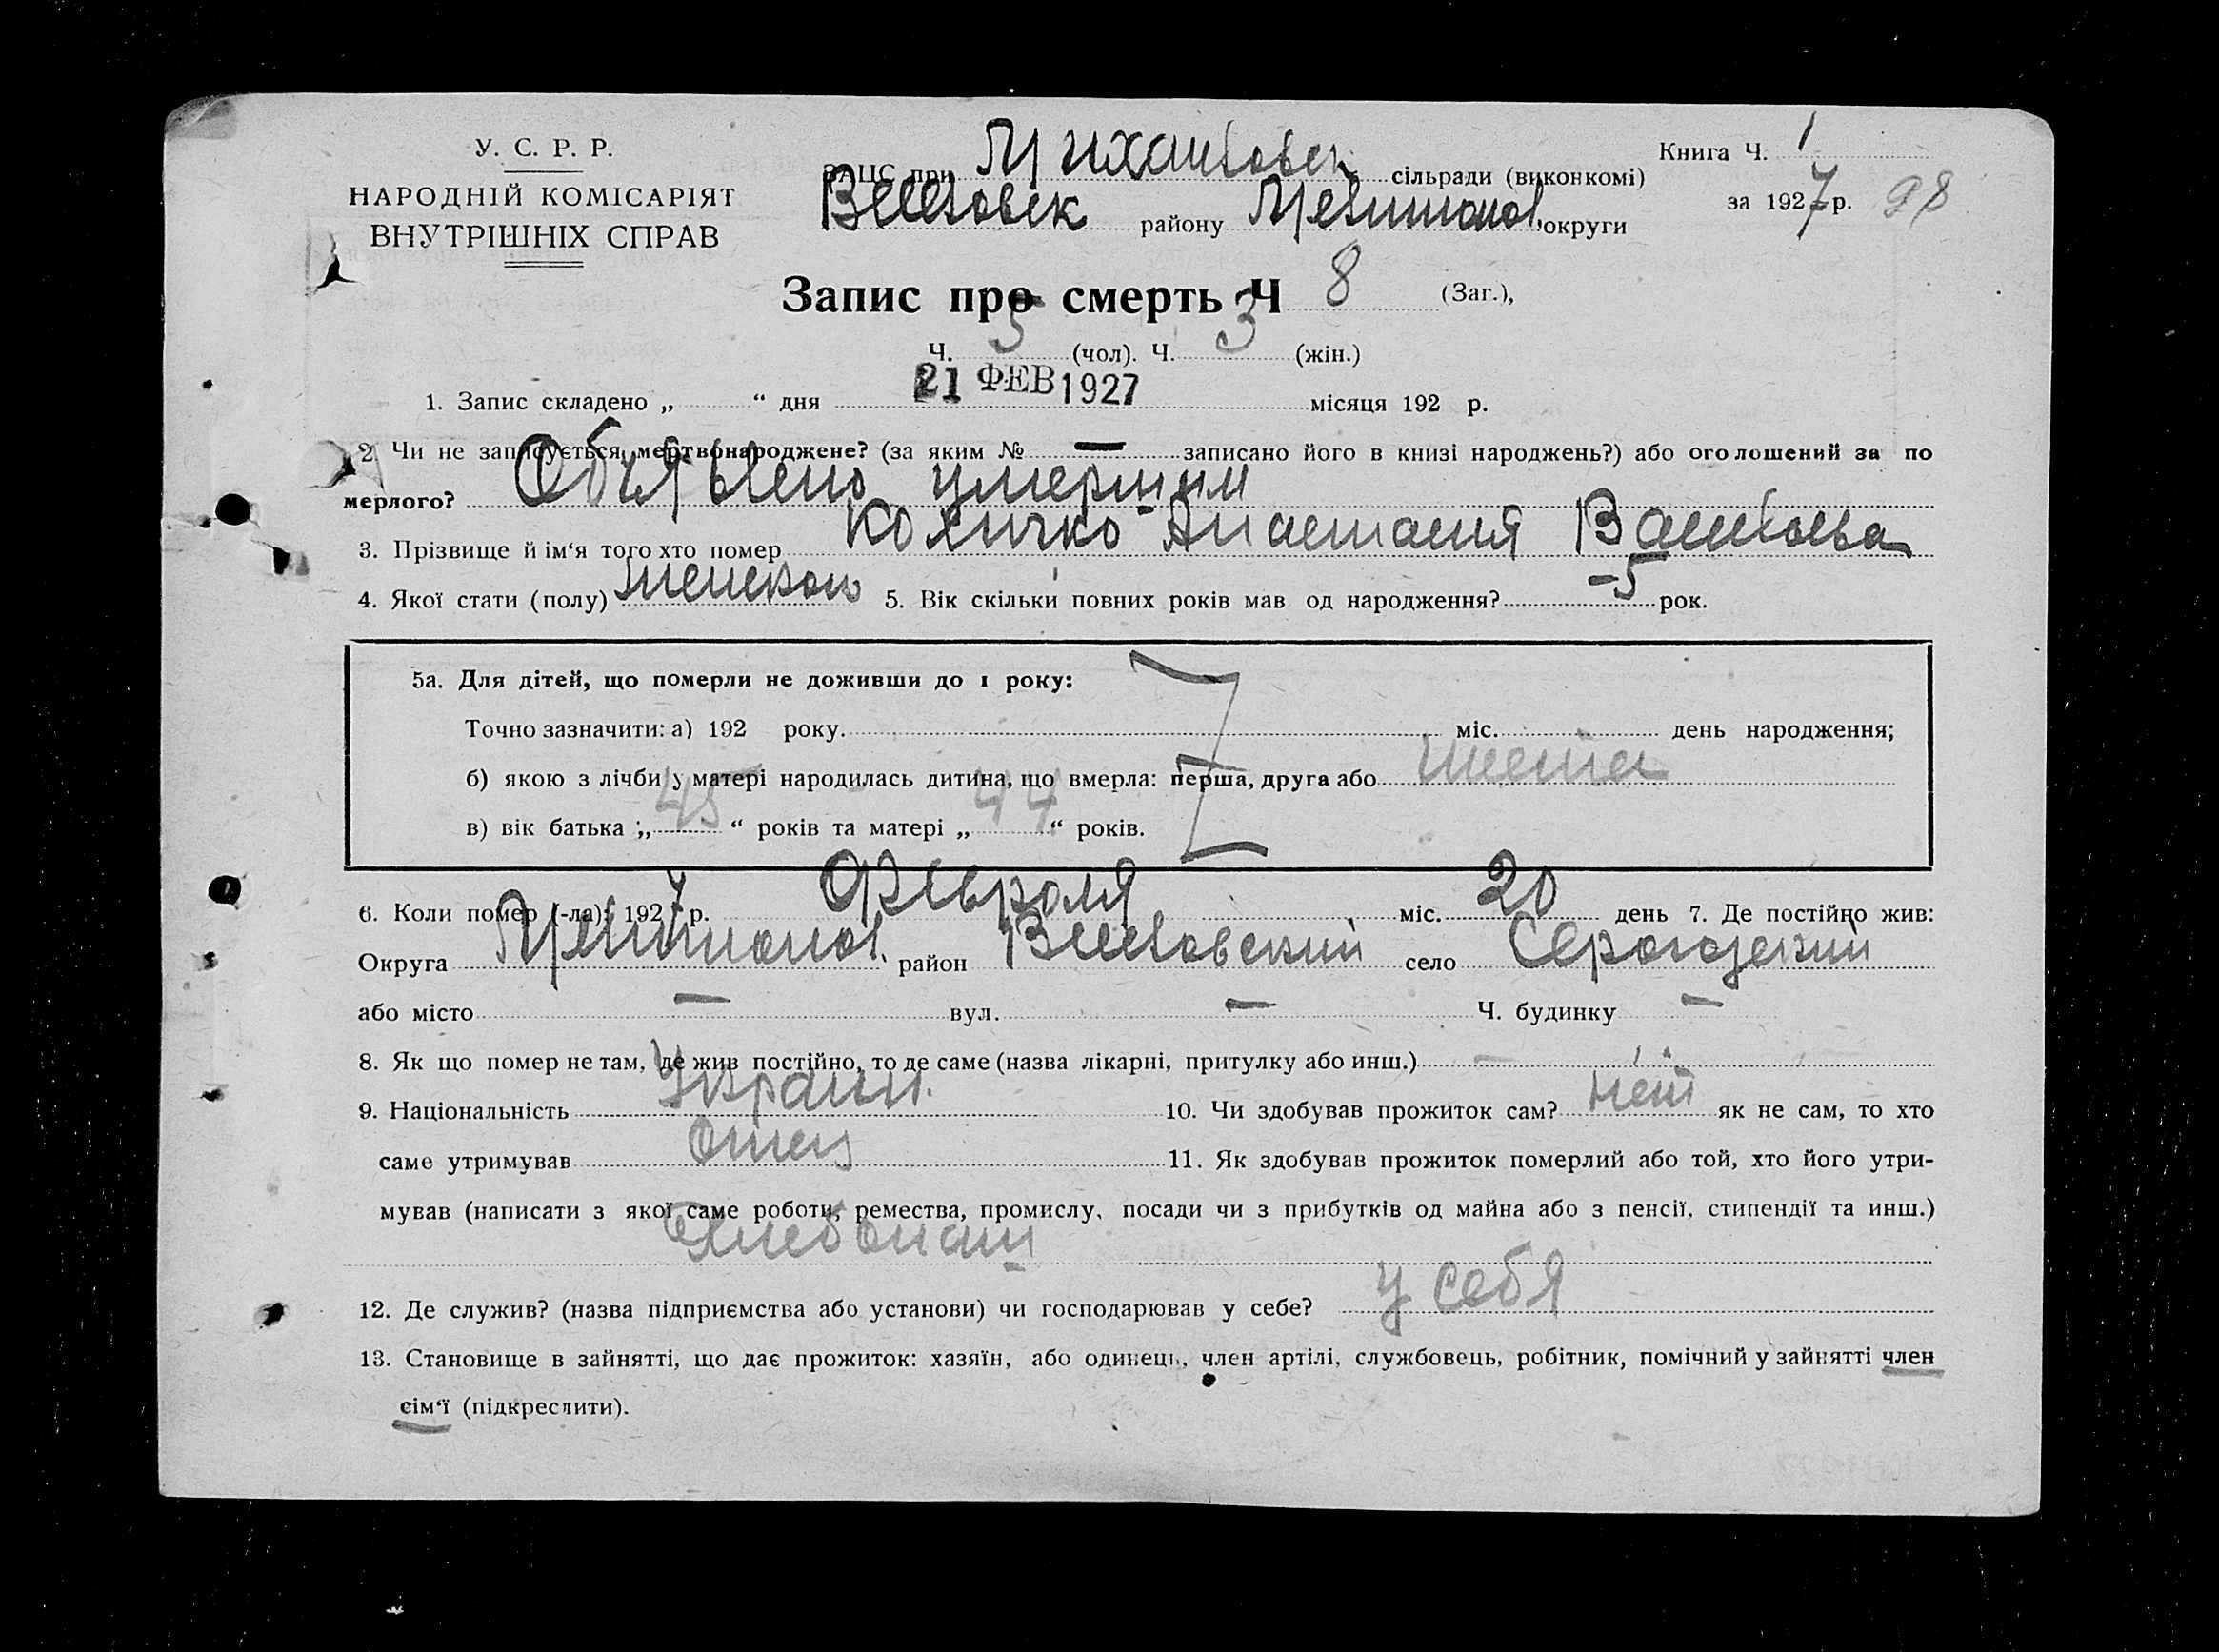 У. С. Р. Р.
НАРОДНІЙ КОМІСАРІЯТ
ВНУТРІШНІХ СПРАВ
ЗАЦС при Михайловск сільради (виконкомі)
Веселовск району Мелитопол. округи
Книга Ч. 1
за 1927 р. 98
Запис про смерть Ч 8 (Заг.),
Ч. 5 (чол). Ч. 3 (жін.)
1. Запис складено „ “ дня 21 ФЕВ 1927 місяця 192 р.
2. Чи не записується мертвонароджене? (за яким № — записано його в книзі народжень?) або оголошений за по
мерлого? Объявлено умершим
3. Прізвище й ім‘я того хто помер Количко Анастасия Васильева
4. Якої стати (полу) женскою 5. Вік скільки повних років мав од народження? –5 рок.
5а. Для дітей, що померли не доживши до 1 року:
Точно зазначити: а) 192 року. міс. день народження;
б) якою з лічби у матері народилась дитина, що вмерла: перша, друга або шеста
в) вік батька „ 45 “ років та матері „ 44 “ років.
6. Коли помер (-ла): 1927 р. Февроля міс. 20 день 7. Де постійно жив:
Округа Мелитопол. район Веселовский село Серогозский
або місто — вул. — Ч. будинку —
8. Як що помер не там, де жив постійно, то де саме (назва лікарні, притулку або инш.) —
9. Національність Украин. 10. Чи здобував прожиток сам? нет як не сам, то хто
саме утримував Отец 11. Як здобував прожиток померлий або той, хто його утри-
мував (написати з якої саме роботи, ремества, промислу, посади чи з прибутків од майна або з пенсії, стипендії та инш.)
Хлебопаш
12. Де служив? (назва підприємства або установи) чи господарював у себе? у себя
13. Становище в зайнятті, що дає прожиток: хазяїн, або одинець, член артілі, службовець, робітник, помічний у зайнятті член
сім‘ї (підкреслити).